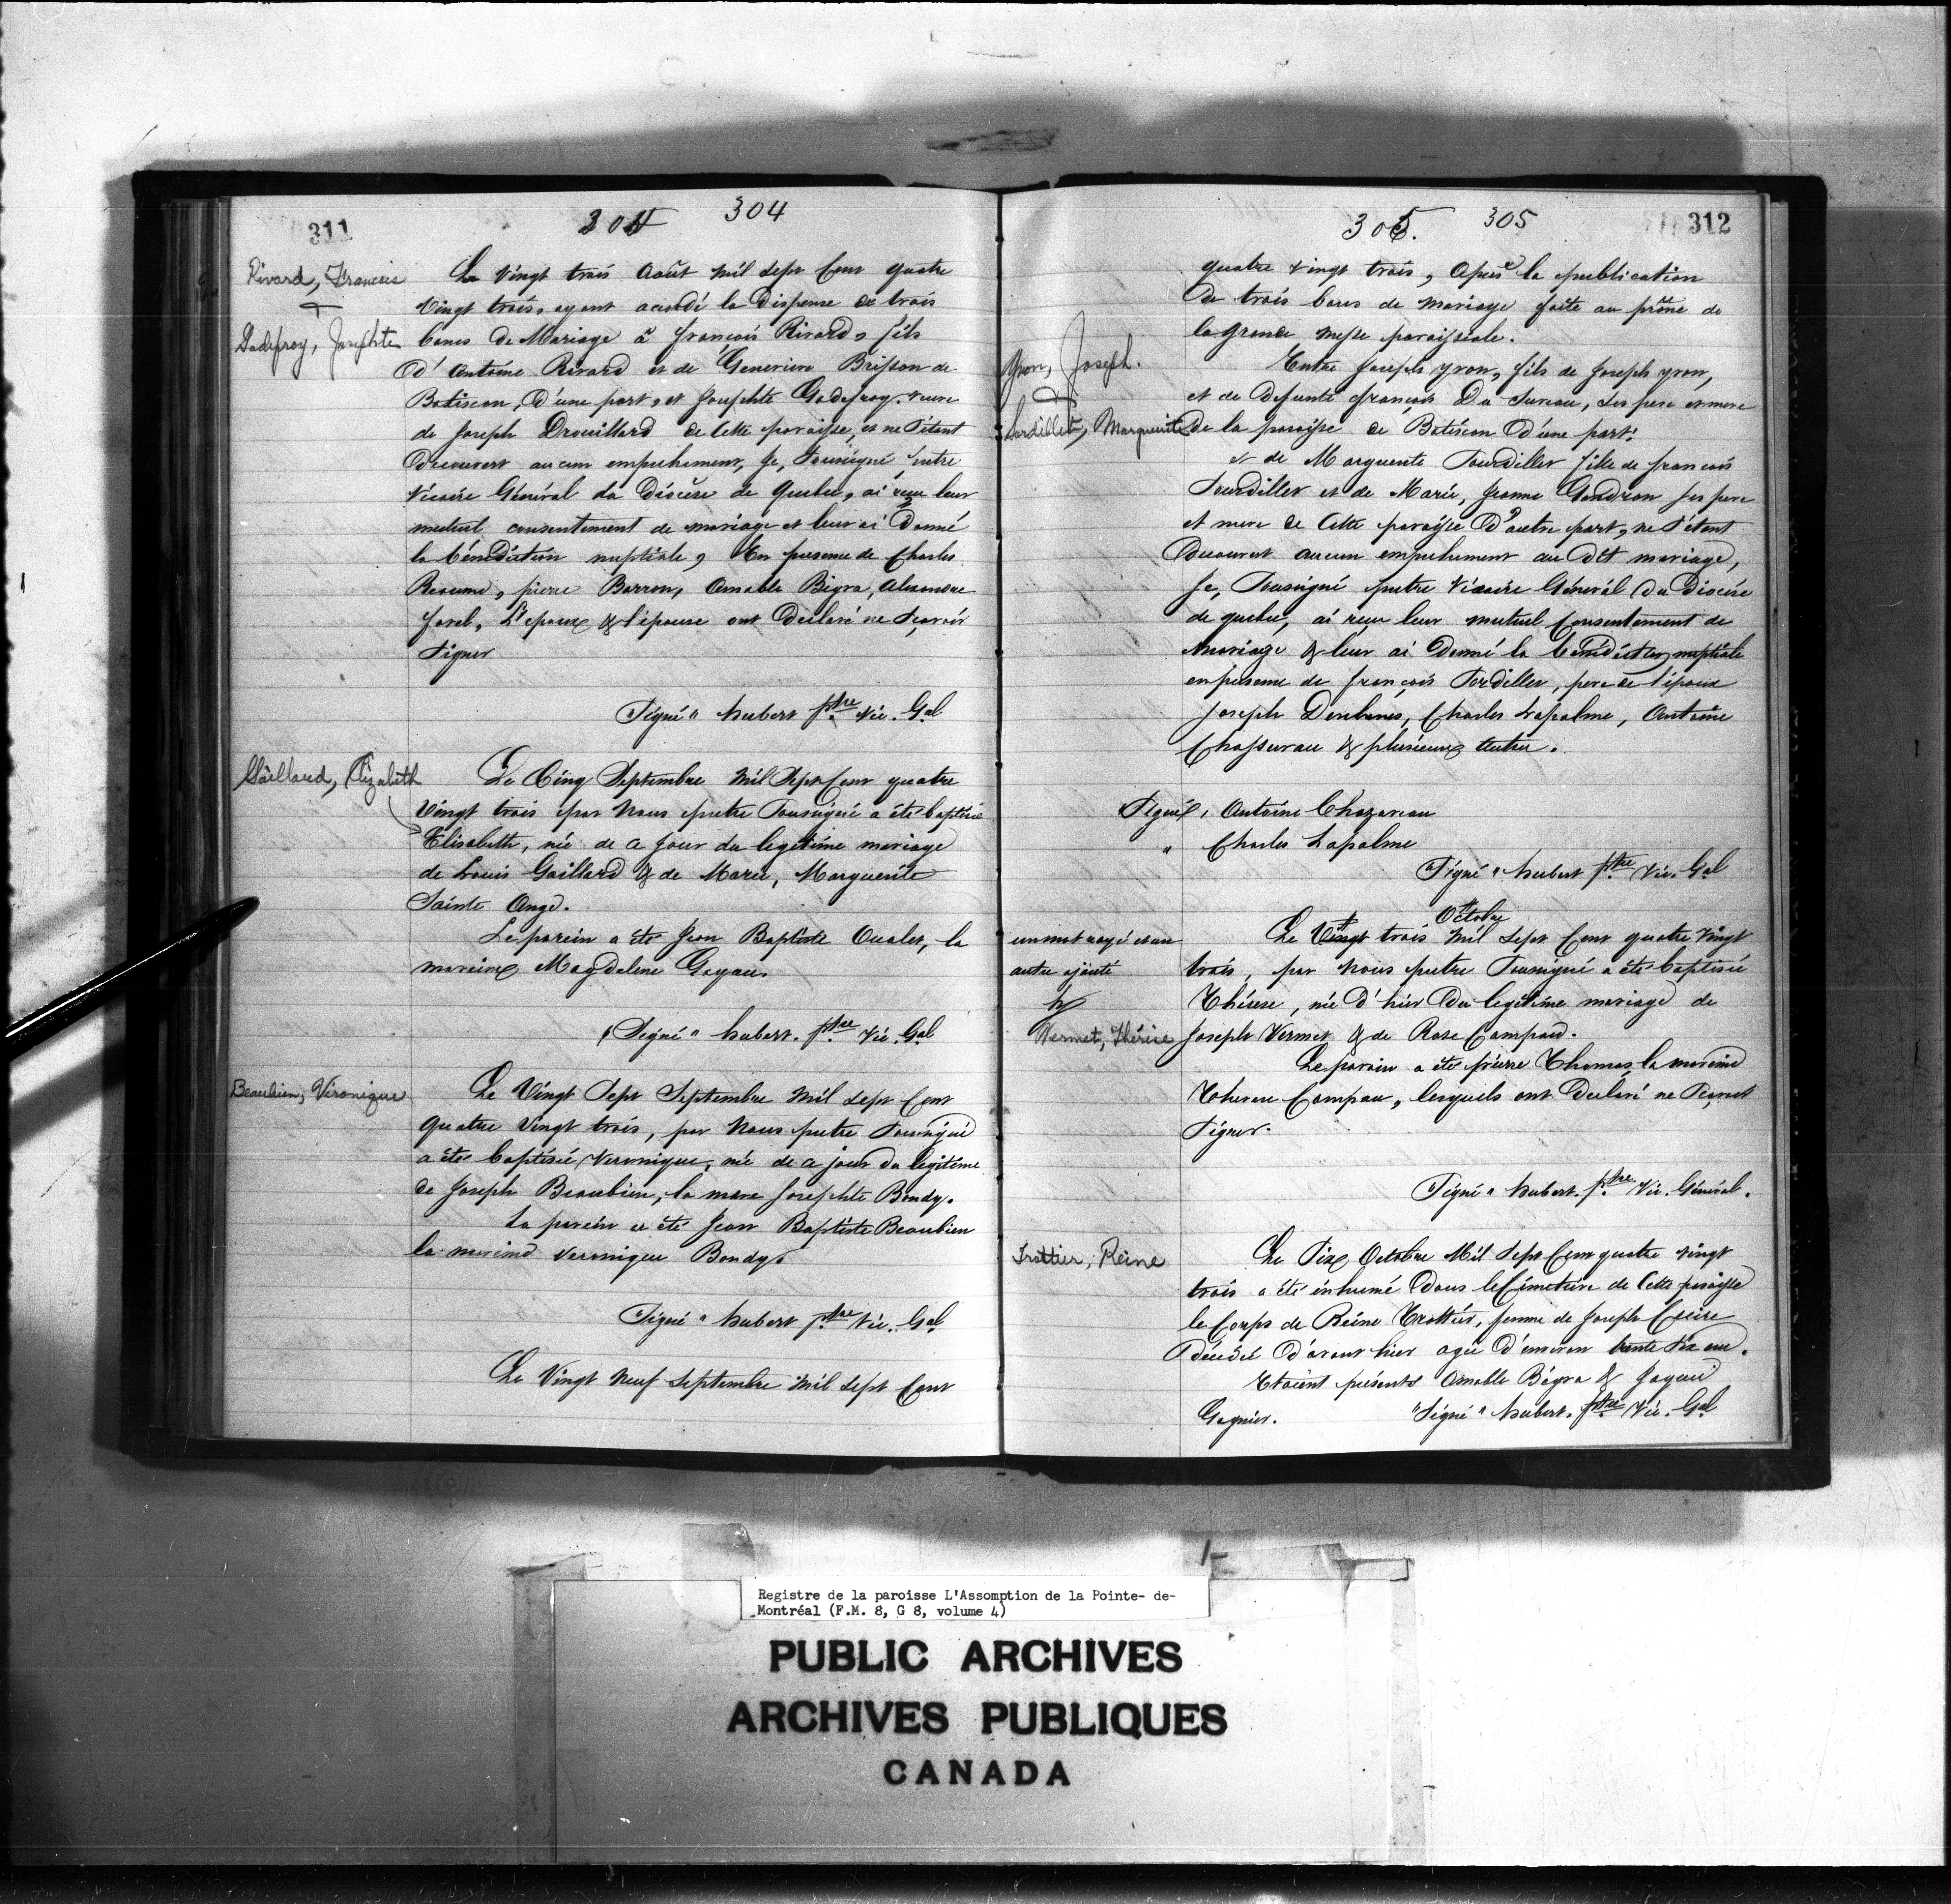 311
304
304
Rivard, Francois
&
Godefroy, Josephte
Le Vingt trois Août Mil Sept Cent quatre
Vingt trois, ayant accordé la Dispense de trois
bancs de Mariage à françois Rivard, fils
D' Antoine Rivard et de Genevieve Brisson de
Batiscan, D'une part, et Josephte Godefroy, veuve
de Joseph Drouillard de Cette paroisse, et ne S'étant
Decouvert aucun empechement, Je, Soussigné prêtre
Vicaire Général du Diocèse de Quebec, ai reçu leur
mutuel consentement de mariage et leur ai Donné
la bénédiction nuptiale, En presence de Charles
Reaume, pierre Barron, Amable Bigra, Alexandre
forel, L'epoux & l'épouse ont Declaré ne Sçavoir
Signer
"Signé" hubert ptre Vic. Gal
Gaillard, Elizabeth
Le Cinq Septembre Mil Sept Cent quatre
Vingt trois par Nous pretre Soussigné a été baptisée
Elisabeth, née de ce Jour du legitime mariage
de Louis Gaillard & de Marie, Marguerite
Sainte Ange.
Le parein a été Jean Baptiste Oualet, la
mareine Magdelene Goyau.
"Signé" hubert. ptre Vic. Gal
Beaubien, Véronique
Le Vingt Sept Septembre Mil Sept Cent
quatre Vingt trois, par Nous pretre Soussigné
a été baptisée Veronique, née de ce jour du legitime
de Joseph Beaubien, la mere Josephte Bondy.
Le parein a été Jean Baptiste Beaubien
la mareine Veronique Bondy.
"Signé" hubert ptre Vic. Gal
Le Vingt Neuf Septembre Mil Sept Cent
305.
305
312
quatre Vingt trois, Après la publication
De trois bancs de Mariage faite au prône de
la grande Messe paroissiale.
Yvon, Joseph.
&
Sordillet, Marguerite
Entre Joseph yvon, fils de Joseph yvon,
et de Defunte françois Du Sureau, Ses pere et mere
De la paroisse de Batiscan D'une part;
et de Marguerite Sourdiller fille de francois
Sourdiller et de Marie, Jeanne Gendron Ses pere
et mere de Cette paroisse D'autre part, ne S'étant
Decouvert aucun empechement au dit mariage,
Je, Soussigné pretre Vicaire Général Du Diocèse
de quebec, ai reçu leur mutuel Consentement de
Mariage & leur ai Donné la bénédiction nuptiale
en presence de françois Sordiller, pere de l'épouse
Joseph Douhanis, Charles Lapalme, Antoine
Chassereau & plusieurs autres.
"Signé", Antoine Chazareau
" Charles Lapalme
"Signé" hubert ptre Vic. Gal
un mot rayé et un
autre ajouté
Vermet, Thérèse
Octobre
Le Vingt trois Mil Sept Cent quatre Vingt
trois, par Nous pretre Soussigné a été baptisée
Thérese, née D'hier Du legitime mariage de
Joseph Vermet & de Rose Campau.
Le parain a été pierre Thomas la mareine
Therese Campau, lesquels ont Declaré ne Scavoir
Signer.
"Signé" hubert. ptre Vic. Général.
Trottier, Reine
Le Six Octobre Mil Sept Cent quatre Vingt
trois a été inhumé Dans le Cimetiere de Cette paroisse
le Corps de Reine Trottier, femme de Joseph Cécire
Décédée D'avant hier agée D'environ trente Six ans.
Etaient présents Amable Bégra &
Gagnier. "Signé" hubert. ptre Vic. Gal
Registre de la paroisse L'Assomption de la Pointe- de-
Montréal (F.M. 8, G 8, volume 4)
PUBLIC ARCHIVES
ARCHIVES PUBLIQUES
CANADA